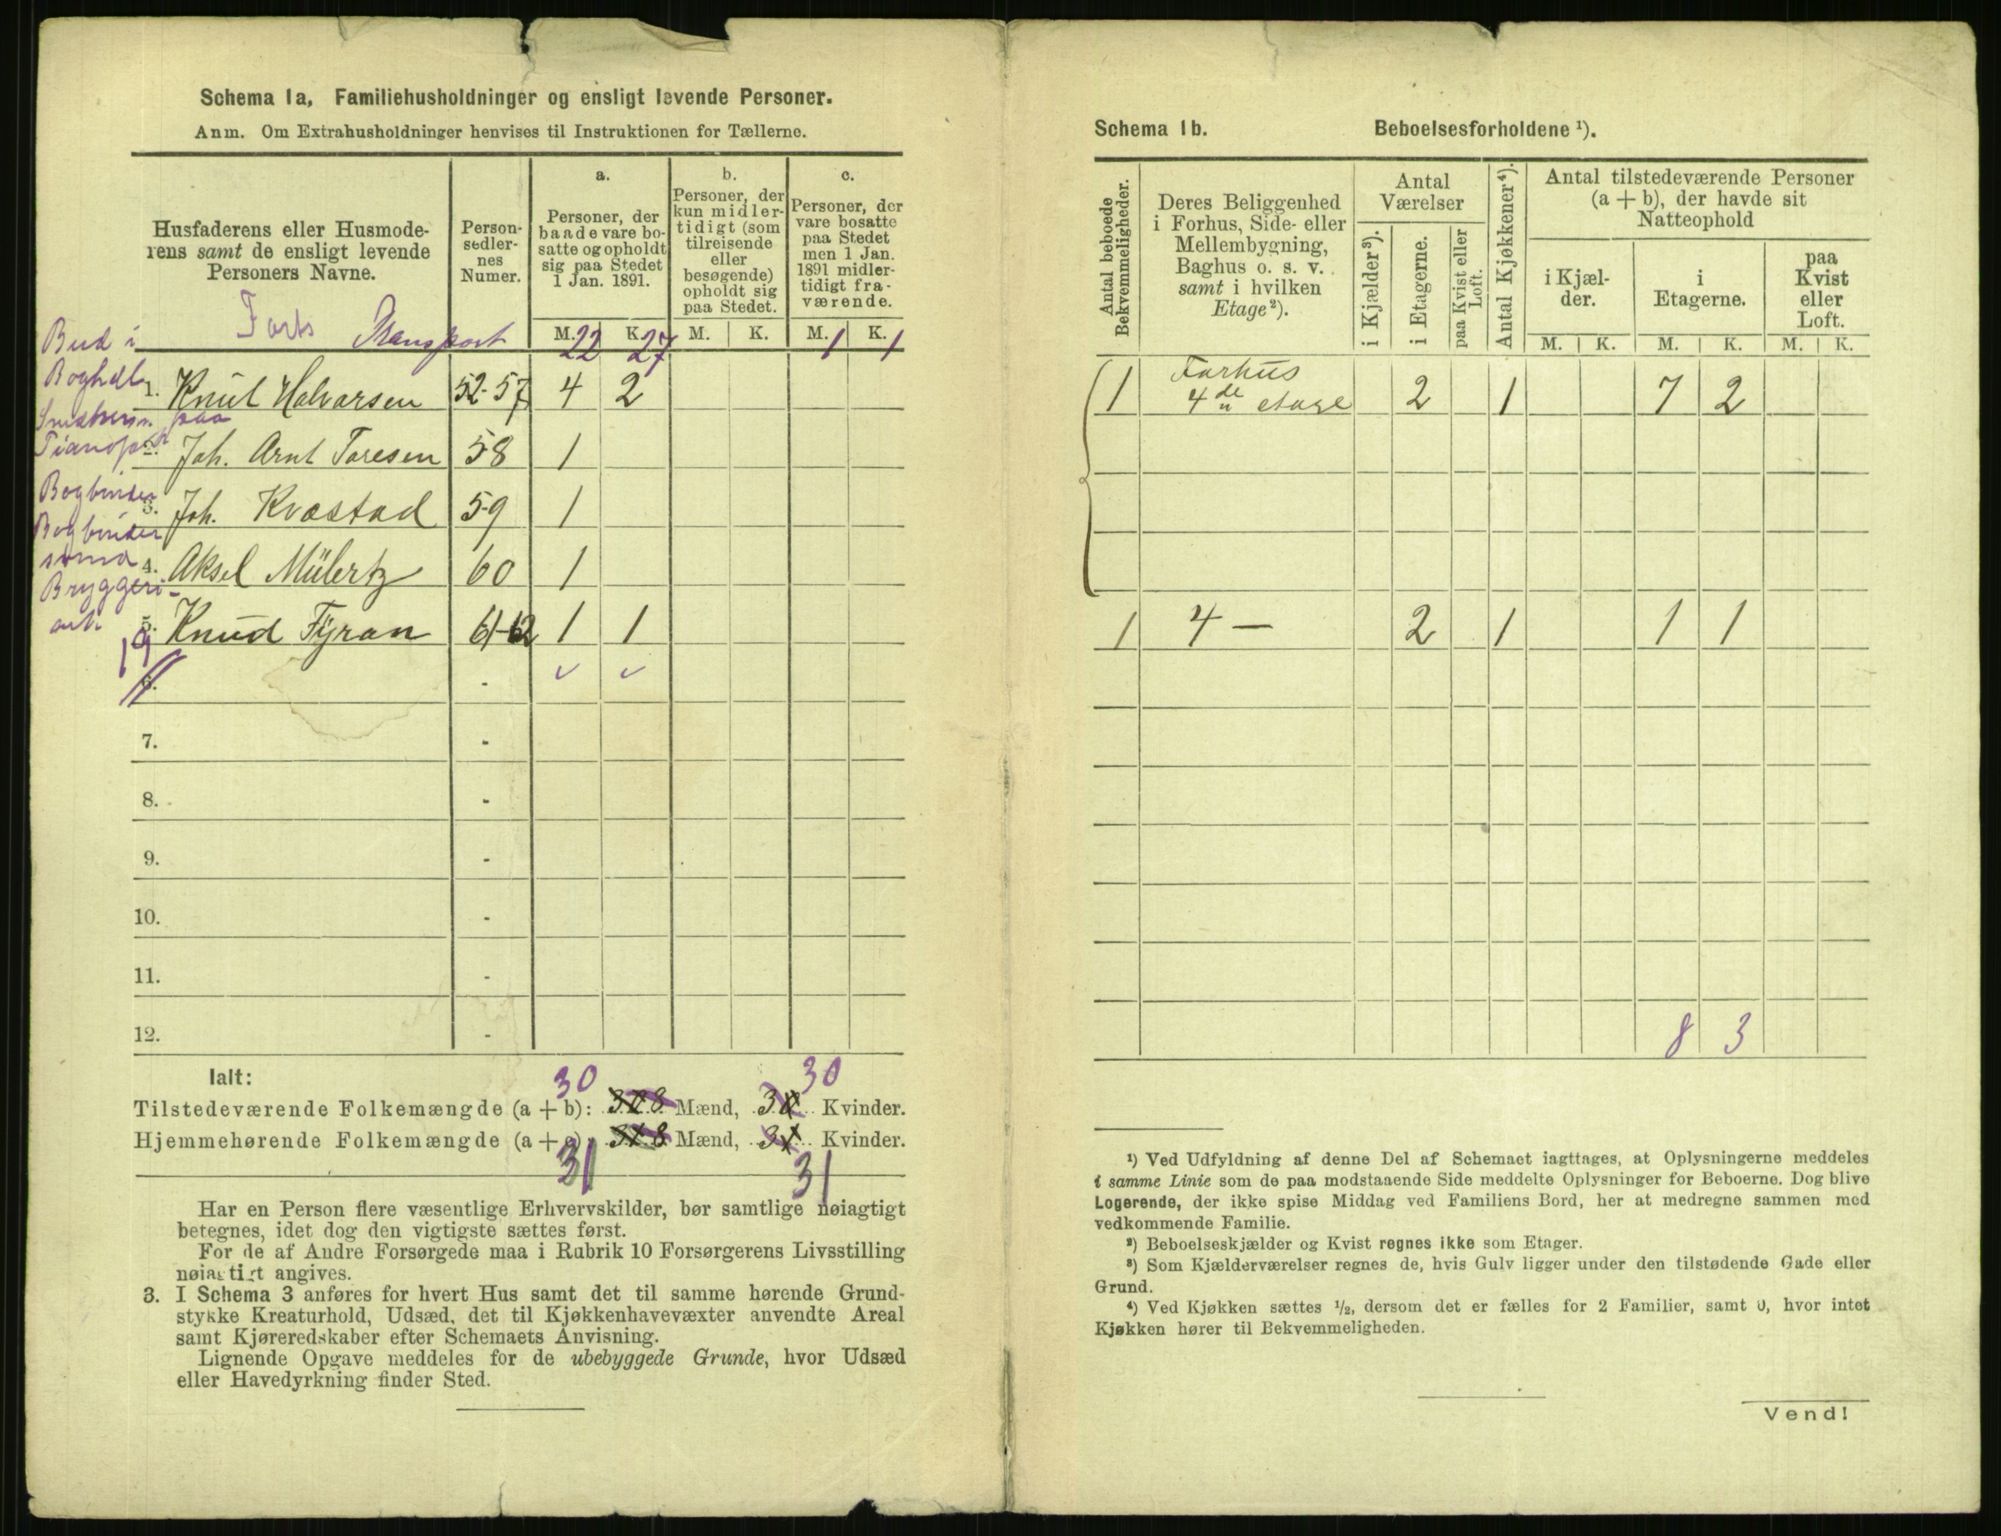 Schema 1a, Familiehusholdninger og ensligt levende Personer.
Anm. Om Extrahusholdninger henvises til Instruktionen for Tællerne.
Husfaderens eller Husmoderens samt de ensligt levende Personers Navne.
Person-sedlernes Numer.
a. Personer, der baade vare bosatte og opholdt sig paa Stedet 1 Jan. 1891.
b. Personer, der kun midlertidigt (som tilreisende eller besøgende) opholdt sig paa Stedet.
c. Personer, der vare bosatte paa Stedet men 1 Jan. 1891 midlertidigt fraværende.
M. K. M. K. M. K.
Forts Transport 22 27 1 1
Bud i Boghdl.
1. Knut Halvorsen 52-57 4 2
paa Pianof.
2. Joh. Arnt Toresen 58 1
Bogbinder
3. Joh. Kvæstad 59 1
Bogbinder svend
4. Aksel Mülertz 60 1
Bryggeri-arb.
5. Knud Fyran 61-62 1 1
19
6. -
7. -
8. -
9. -
10. -
11. -
12. -
Ialt: 30 30
Tilstedeværende Folkemængde (a + b): Mænd, Kvinder.
Hjemmehørende Folkemængde (a + c): Mænd, Kvinder.
31 31
Har en Person flere væsentlige Erhvervskilder, bør samtlige nøiagtigt
betegnes, idet dog den vigtigste sættes først.
For de af Andre Forsørgede maa i Rubrik 10 Forsørgerens Livsstilling
nøiagtigt angives.
3. I Schema 3 anføres for hvert Hus samt det til samme hørende Grund-
stykke Kreaturhold, Udsæd, det til Kjøkkenhavevæxter anvendte Areal
samt Kjøreredskaber efter Schemaets Anvisning.
Lignende Opgave meddeles for de ubebyggede Grunde, hvor Udsæd
eller Havedyrkning finder Sted.
Schema 1b. Beboelsesforholdene ¹).
Antal beboede Bekvemmeligheder.
Deres Beliggenhed i Forhus, Side- eller Mellembygning, Baghus o. s. v. samt i hvilken Etage²).
Antal Værelser
i Kjælder³).
i Etagerne.
paa Kvist eller Loft.
Antal Kjøkkener⁴).
Antal tilstedeværende Personer (a + b), der havde sit Natteophold
i Kjælder.
i Etagerne.
paa Kvist eller Loft.
M. K. M. K. M. K.
1 Forhus 4de etage 2 1 7 2
1 4 — 2 1 1 1
8 3
¹) Ved Udfyldning af denne Del af Schemaet iagttages, at Oplysningerne meddeles
i samme Linie som de paa modstaaende Side meddelte Oplysninger for Beboerne. Dog blive
Logerende, der ikke spise Middag ved Familiens Bord, her at medregne sammen med
vedkommende Familie.
²) Beboelseskjælder og Kvist regnes ikke som Etager.
³) Som Kjælderværelser regnes de, hvis Gulv ligger under den tilstødende Gade eller
Grund.
⁴) Ved Kjøkken sættes ½, dersom det er fælles for 2 Familier, samt 0, hvor intet
Kjøkken hører til Bekvemmeligheden.
Vend!